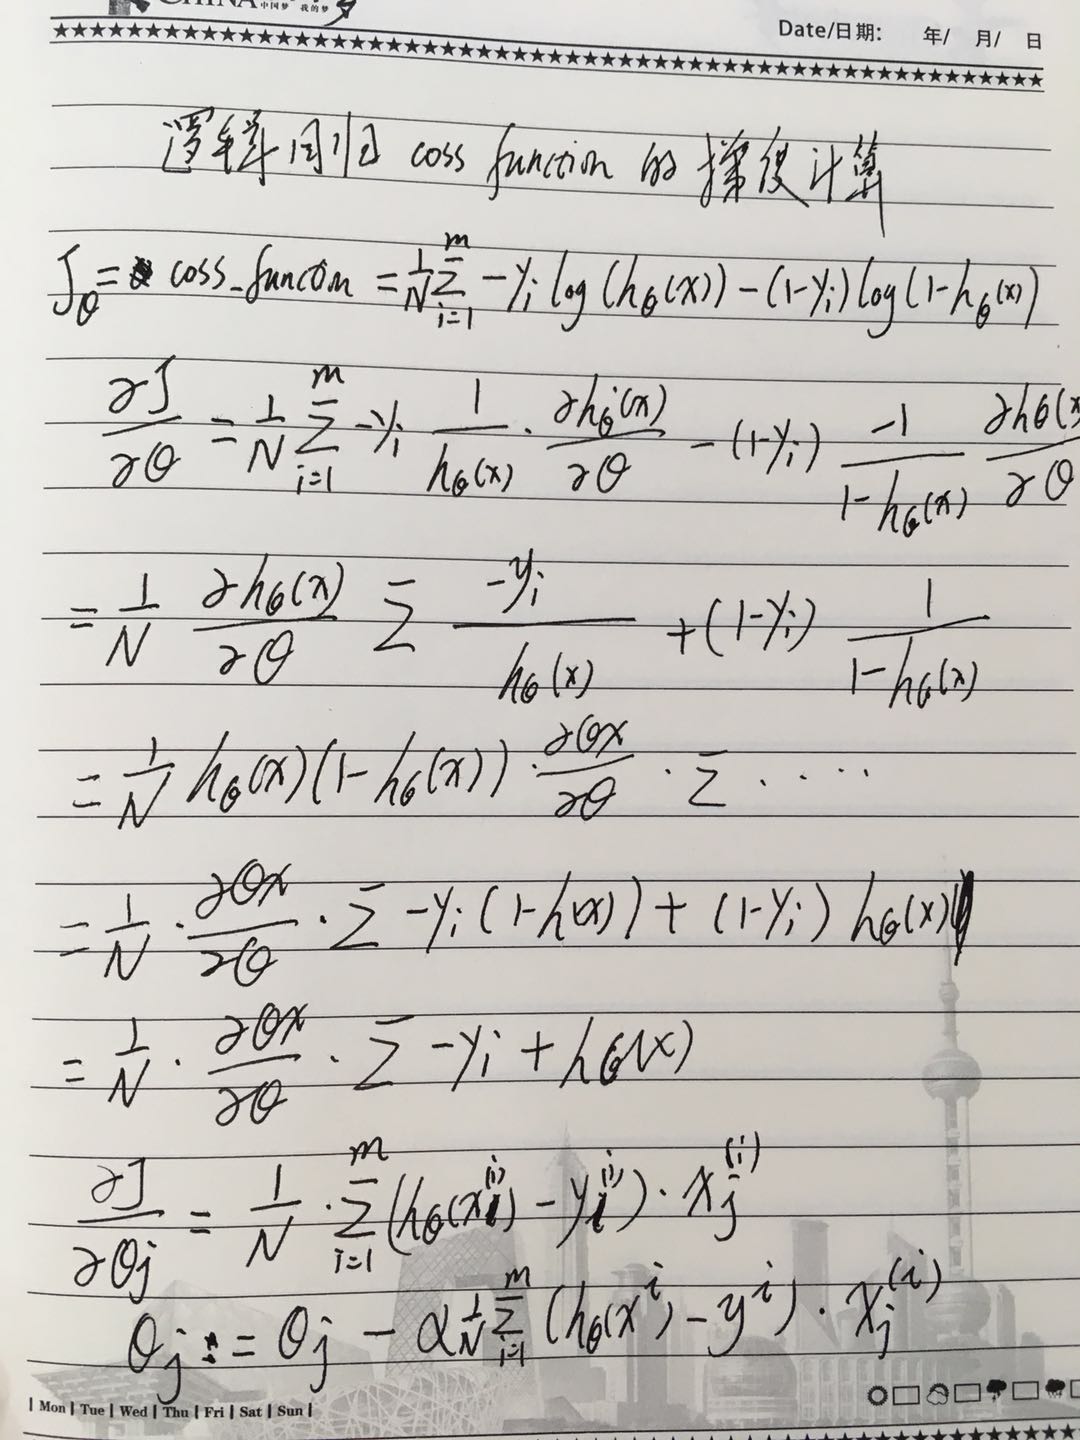 CHINA 中国梦 我的梦
Date/日期: 年/ 月/ 日
逻辑回归 coss function 的梯度计算
J_θ = coss_function = 1/N Σ_{i=1}^{m} -y_i log(h_θ(x)) - (1-y_i) log(1-h_θ(x)
∂J/∂θ = 1/N Σ_{i=1}^{m} -y_i 1/h_θ(x) · ∂h_θ(x)/∂θ - (1-y_i) -1/1-h_θ(x) ∂h_θ(x/∂θ
= 1/N ∂h_θ(x)/∂θ Σ -y_i/h_θ(x) + (1-y_i) 1/1-h_θ(x)
= 1/N h_θ(x)(1-h_θ(x)) · ∂θx/∂θ · Σ ·····
= 1/N · ∂θx/∂θ · Σ -y_i (1-h(x)) + (1-y_i) h_θ(x)
= 1/N · ∂θx/∂θ · Σ -y_i + h_θ(x)
∂J/∂θ_j = 1/N · Σ_{i=1}^{m} (h_θ(x^{(i)}) - y^{(i)}) · x_j^{(i)}
θ_j := θ_j - α 1/N Σ_{i=1}^{m} (h_θ(x^i) - y^i) · x_j^{(i)}
| Mon | Tue | Wed | Thu | Fri | Sat | Sun |